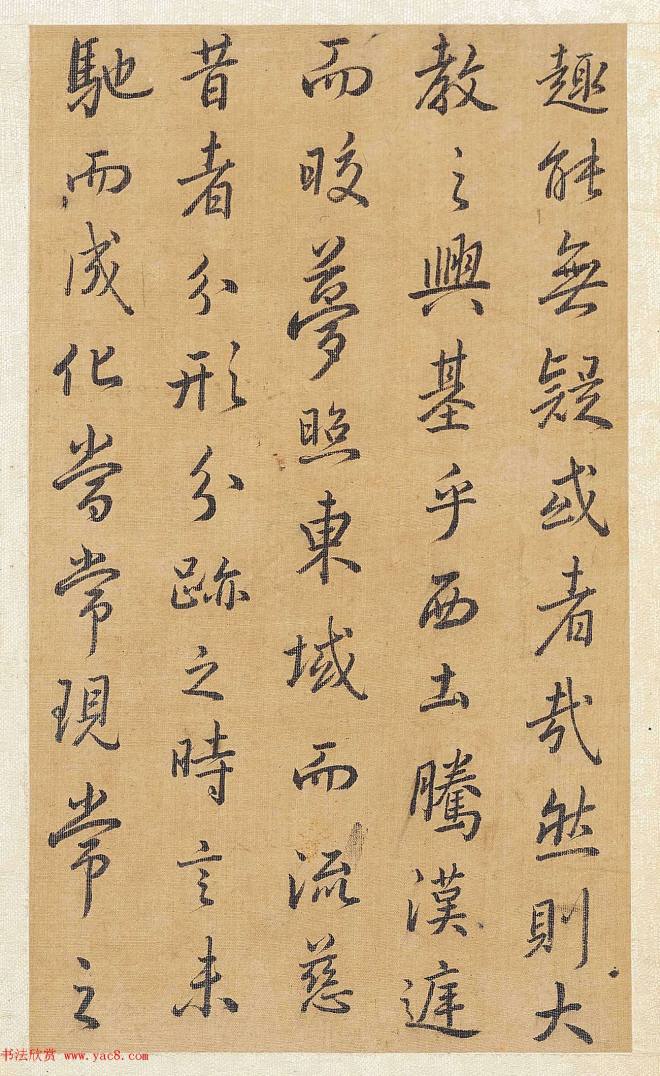 趣能無疑或者哉然則大
教之興基乎西土騰漢庭
而晈夢照東域而流慈
昔者分形分跡之時言未
馳而成化當常現常之
书法欣赏 www.yac8.com